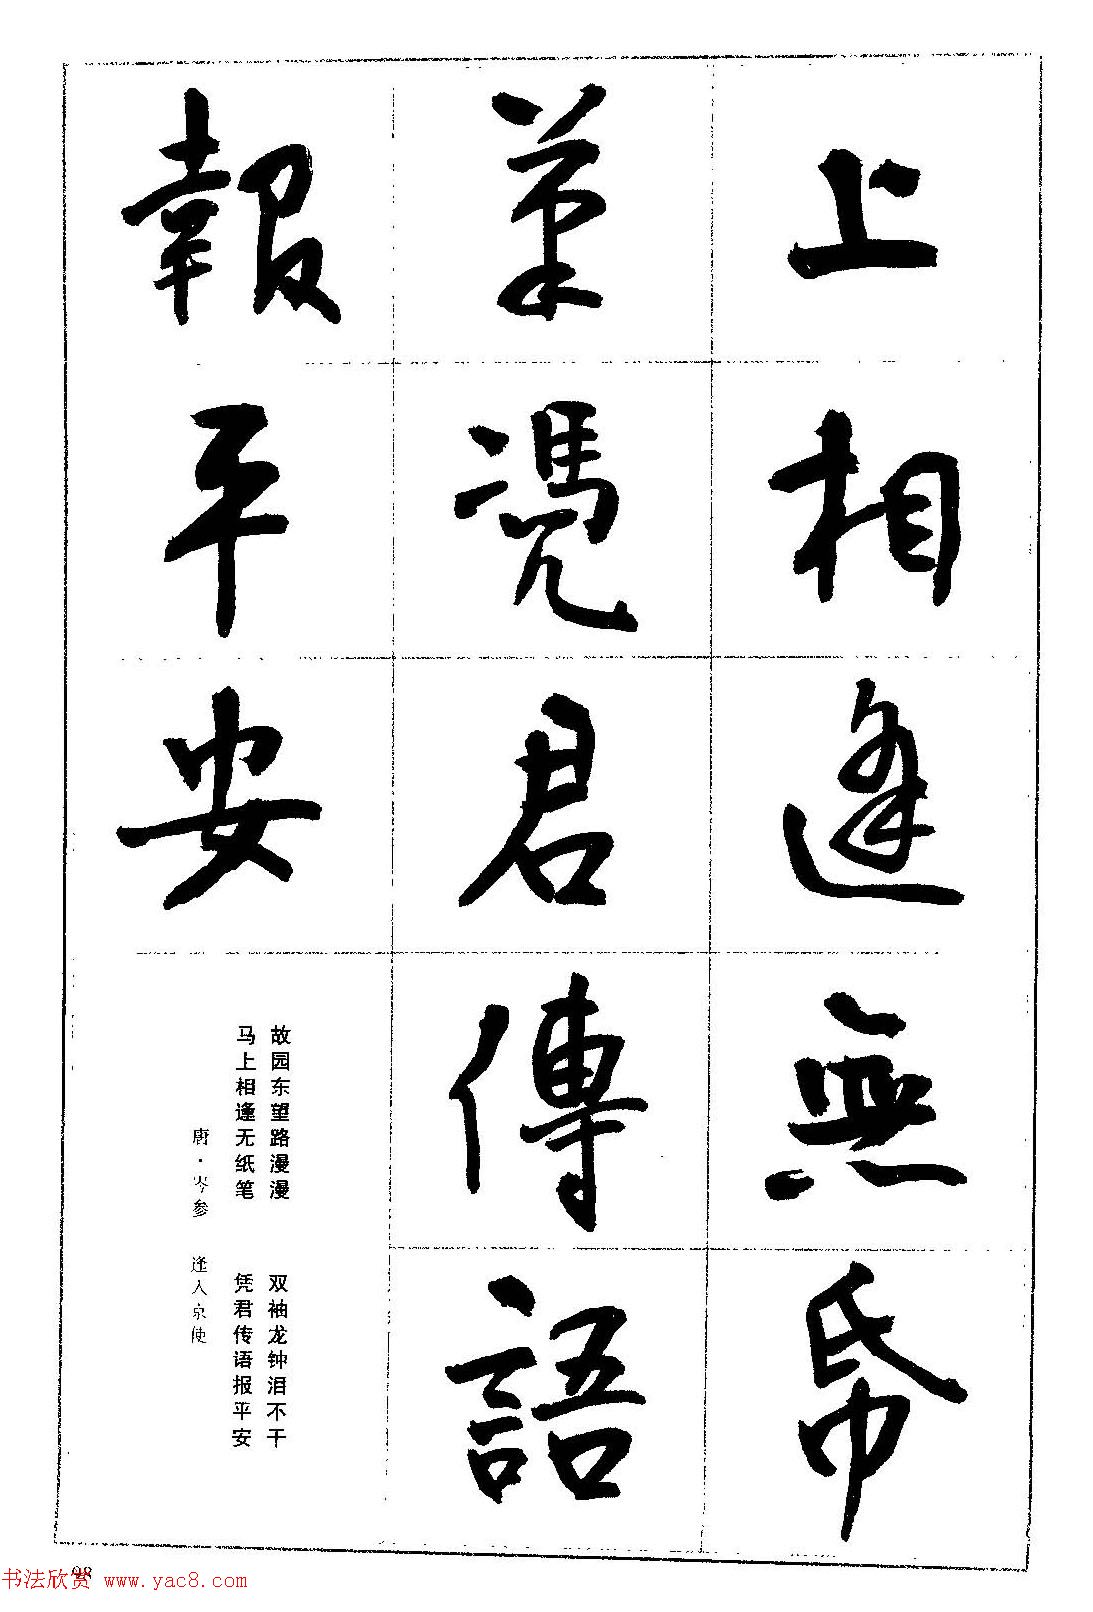 上相逢無帋
筆憑君傳語
報平安
故园东望路漫漫 双袖龙钟泪不干
马上相逢无纸笔 凭君传语报平安
唐·岑参 逢入京使
98
书法欣赏 www.yac8.com